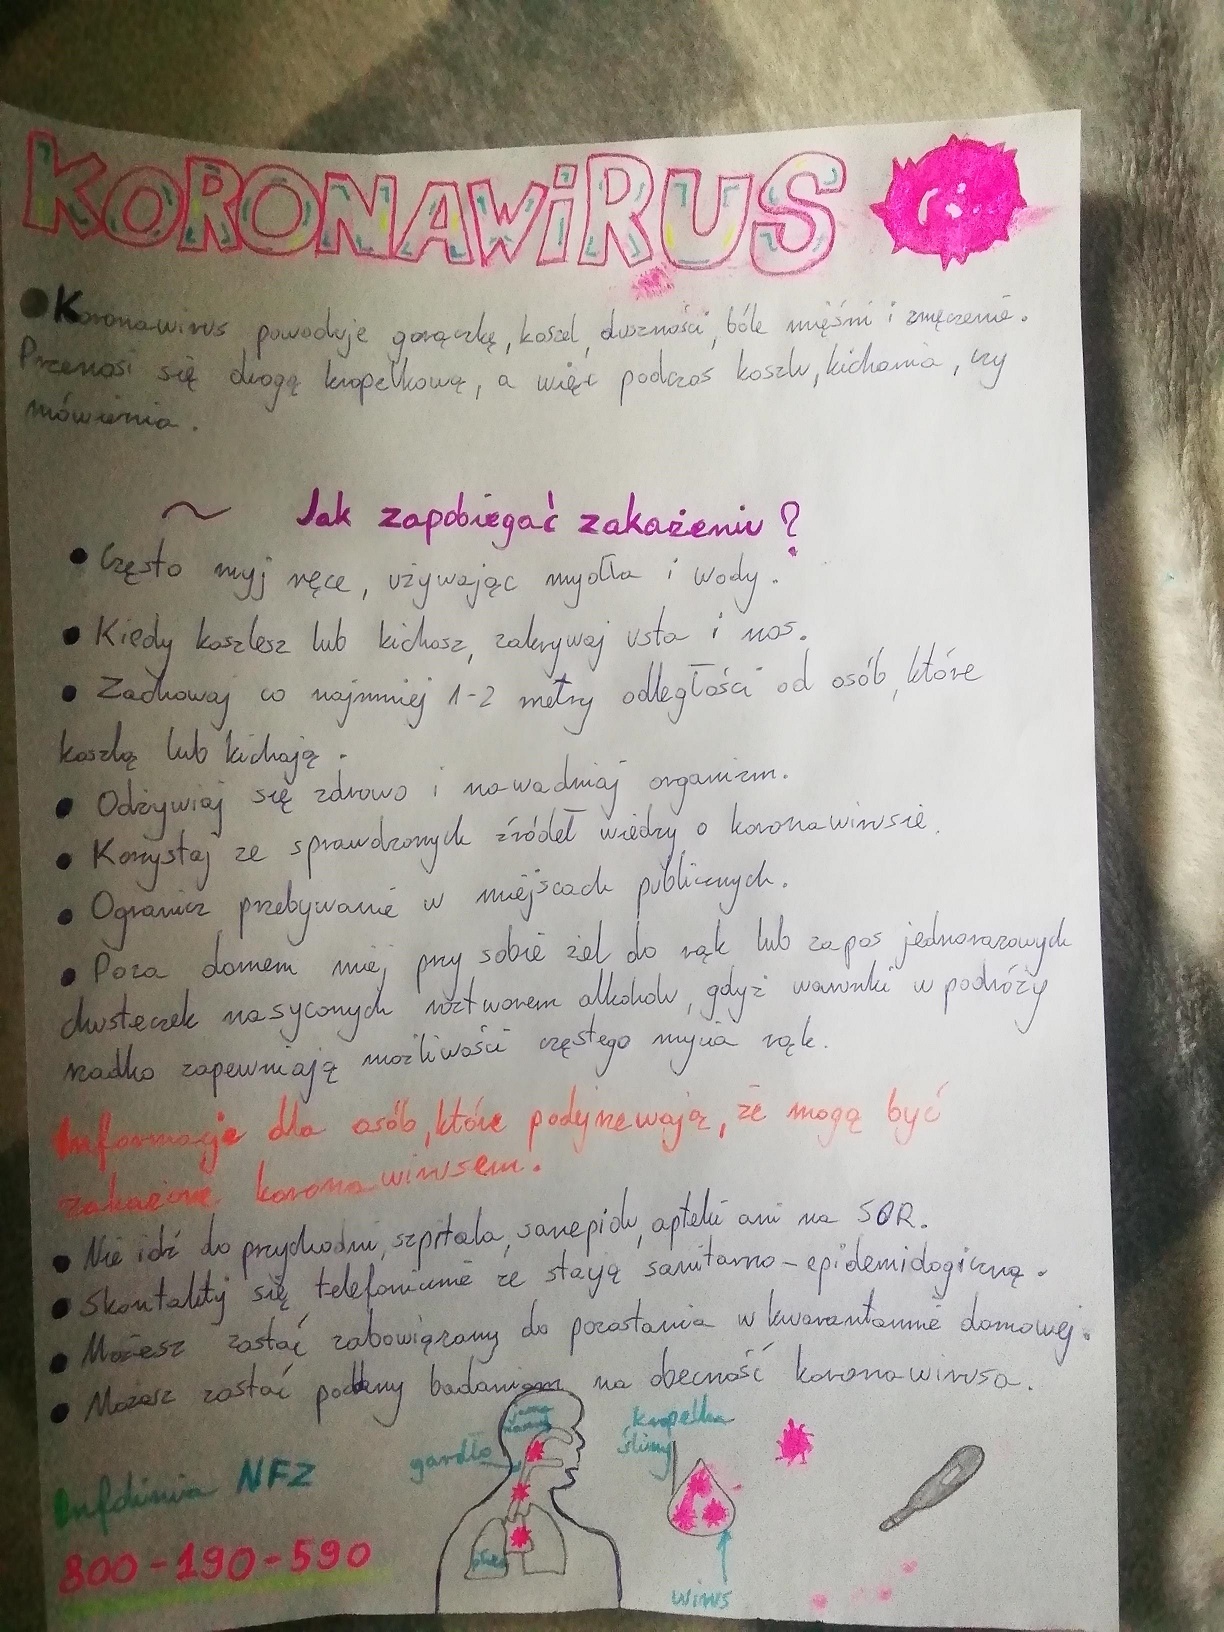 KORONAWiRUS
Koronawirus powoduje gorączkę, kaszel, duszności, bóle mięśni i zmęczenie.
Przenosi się drogą kropelkową, a więc podczas kaszlu, kichania, czy
mówienia.
~ Jak zapobiegać zakażeniu?
• Często myj ręce, używając mydła i wody.
• Kiedy kaszlesz lub kichasz, zakrywaj usta i nos.
• Zachowaj co najmniej 1-2 metry odległości od osób, które
kaszlą lub kichają.
• Odżywiaj się zdrowo i nawadniaj organizm.
• Korzystaj ze sprawdzonych źródeł wiedzy o koronawirusie.
• Ogranicz przebywanie w miejscach publicznych.
• Poza domem miej przy sobie żel do rąk lub zapas jednorazowych
chusteczek nasyconych roztworem alkoholu, gdyż warunki w podróży
rzadko zapewniają możliwości częstego mycia rąk.
Informacje dla osób, które podejrzewają, że mogą być
zakażone koronawirusem.
• Nie idź do przychodni, szpitala, sanepidu, apteki ani na SOR.
• Skontaktuj się telefonicznie ze stacją sanitarno-epidemiologiczną.
• Możesz zostać zobowiązany do pozostania w kwarantannie domowej.
• Możesz zostać poddany badaniom na obecność koronawirusa.
jama
nosowa
gardło
płuca
kropelka
śliny
wirus
Infolinia NFZ
800-190-590